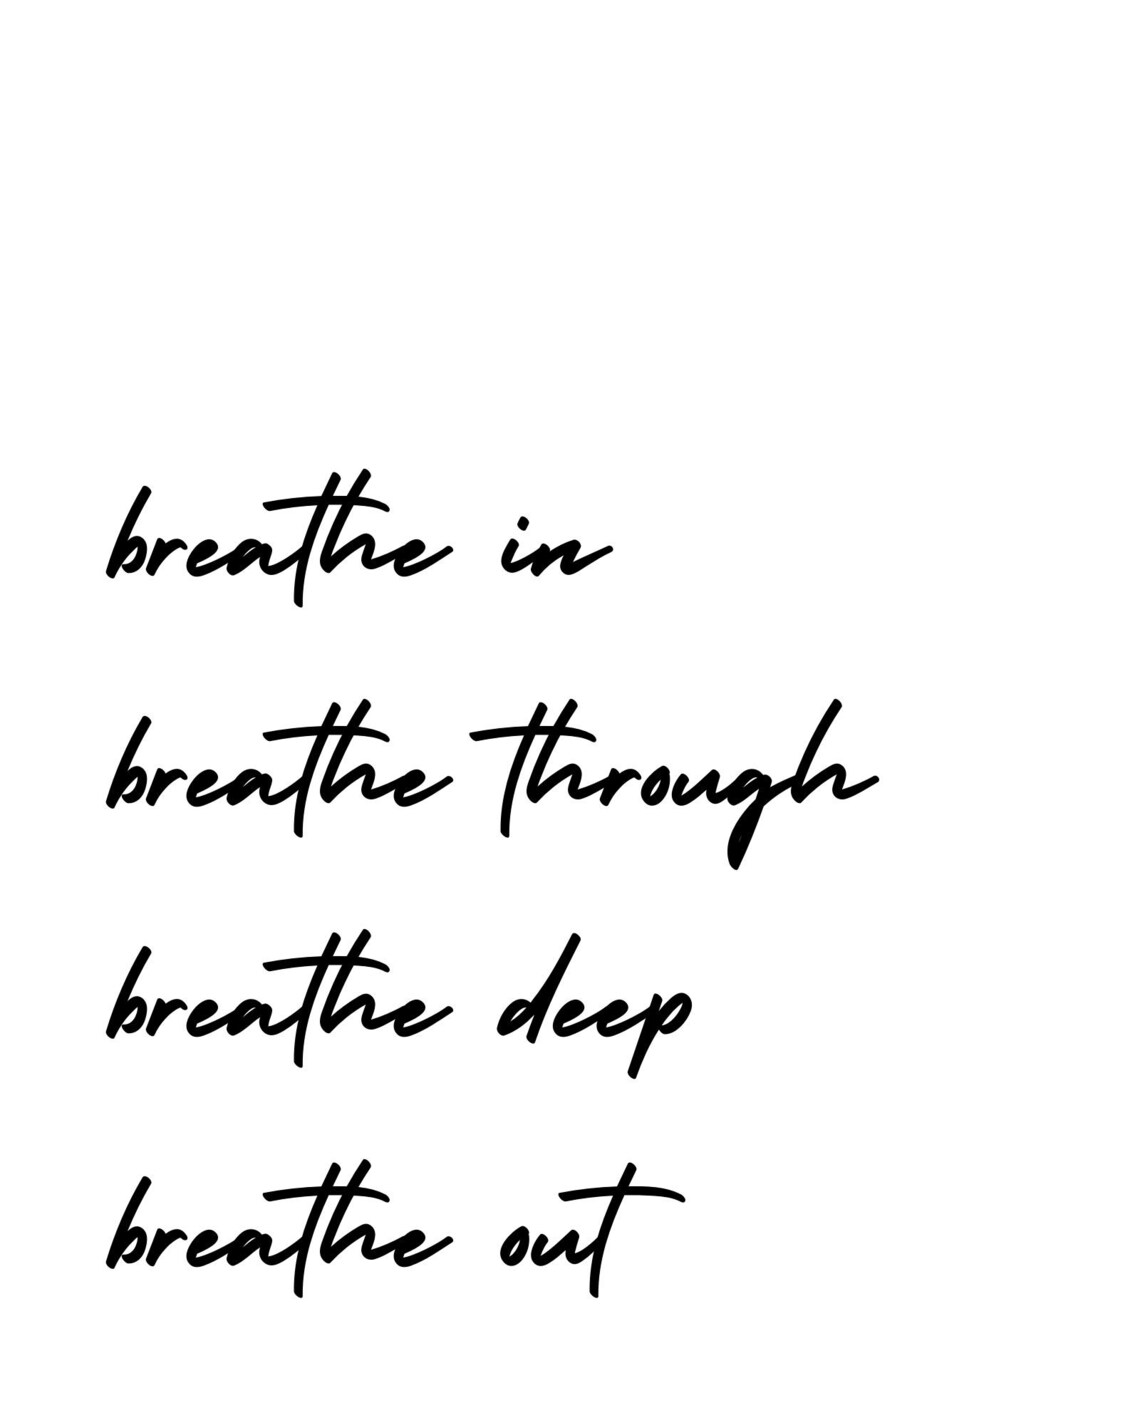 breathe in
breathe through
breathe deep
breathe out